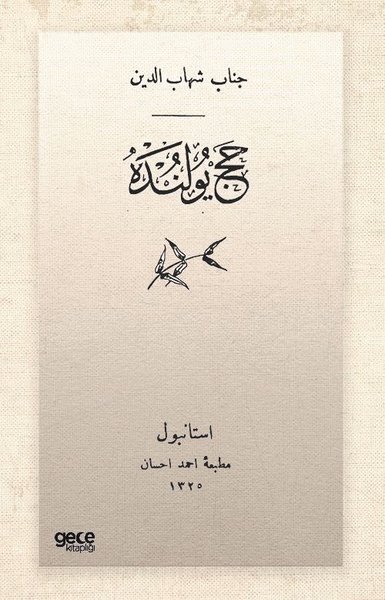 جناب شهاب الدين
حج يولنده
استانبول
مطبعهٔ احمد احسان
١٣٢٥
gece
kitaplığı